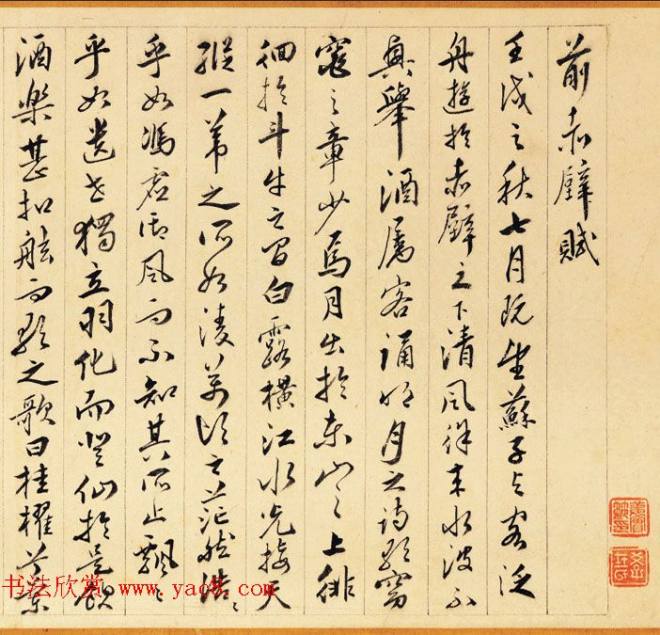 前赤壁賦
壬戌之秋七月既望蘇子与客泛
舟遊於赤壁之下清風徐来水波不
興舉酒属客誦明月之詩歌窈
窕之章少焉月出於東山之上徘
徊於斗牛之間白露橫江水光接天
縱一葦之所如淩萬頃之茫然浩〻
乎如馮虛御風而不知其所止飄〻
乎如遺世獨立羽化而登仙於是飲
酒樂甚扣舷而歌之歌曰桂櫂兮蘭
书法欣赏 www.yac8.com